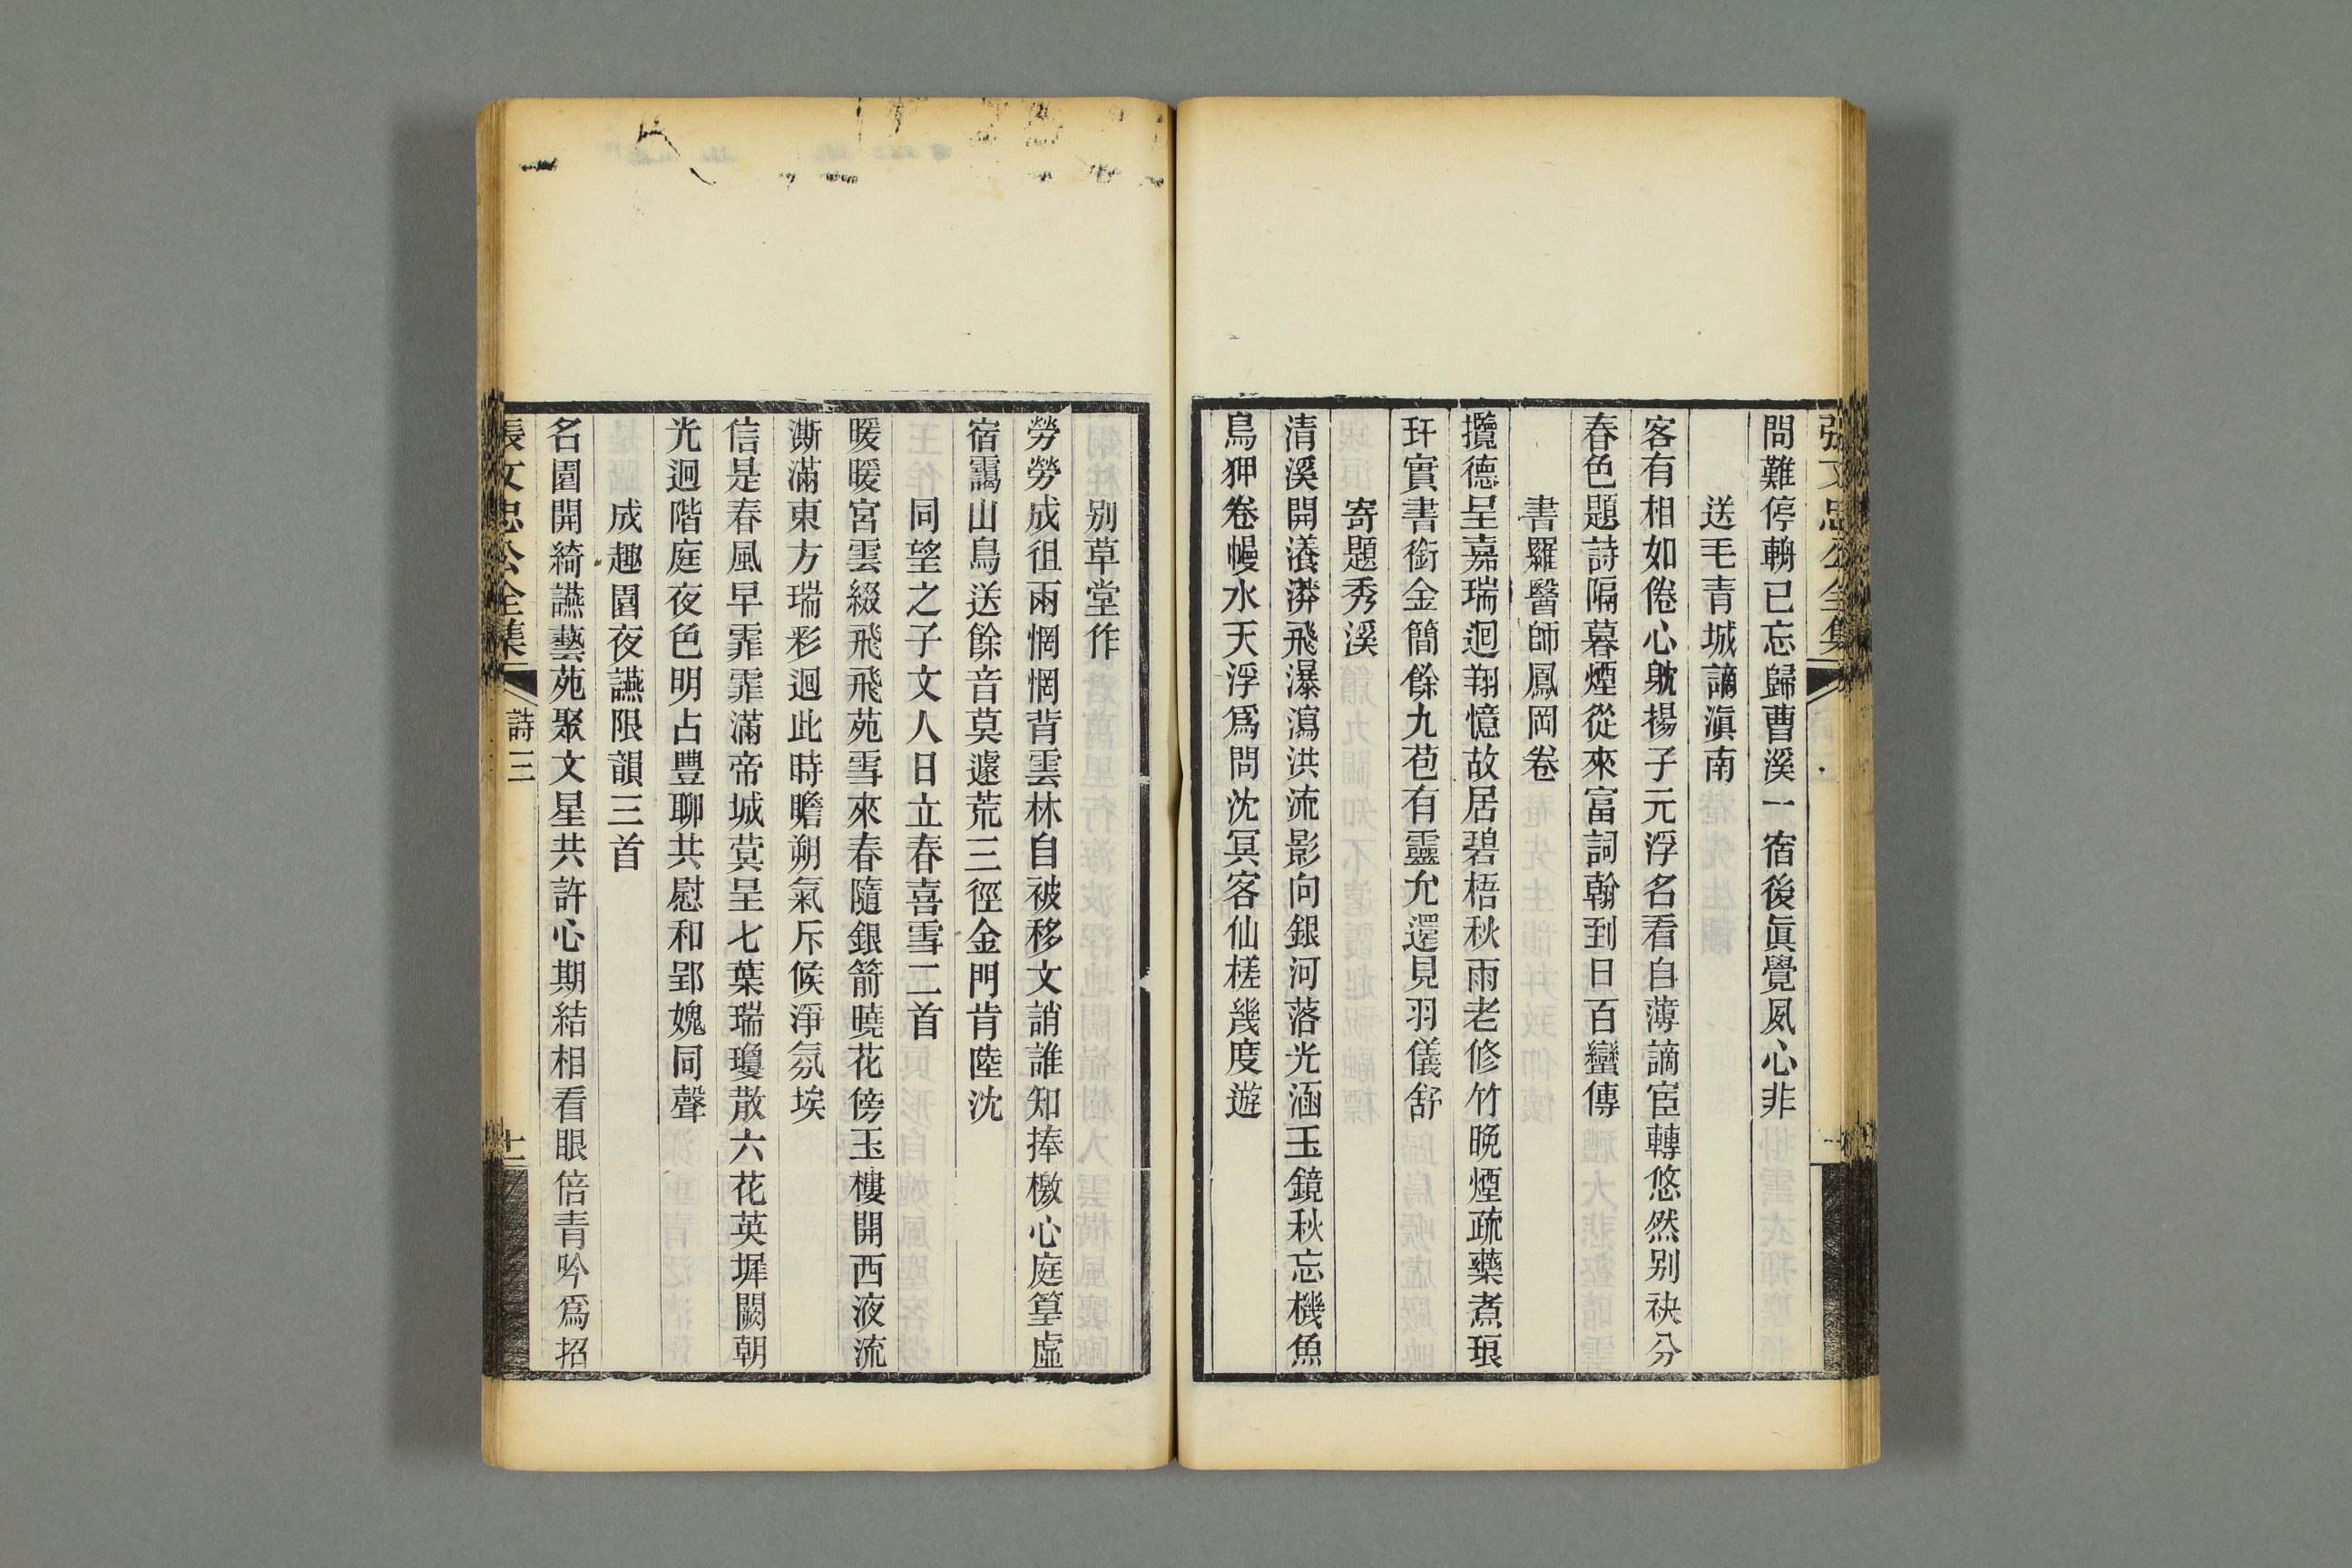 張文忠公全集
問難停輈已忘歸曹溪一宿後眞覺夙心非
送毛青城謫滇南
客有相如倦心躭揚子元浮名看自薄謫宦轉悠然别袂分
春色題詩隔暮煙從來富詞翰到日百蠻傳
書羅醫師鳳岡卷
攬德呈嘉瑞迴翔憶故居碧梧秋雨老修竹晚煙疏藥煮琅
玕實書銜金簡餘九苞有靈允還見羽儀舒
寄題秀溪
清溪開瀁漭飛瀑瀉洪流影向銀河落光涵玉鏡秋忘機魚
鳥狎卷幔水天浮爲問沈冥客仙槎幾度遊
别草堂作
勞勞成徂兩惘惘背雲林自被移文誚誰知捧檄心庭篁虛
宿靄山鳥送餘音莫遽荒三徑金門肯陸沈
同望之子文人日立春喜雪二首
暖暖宮雲綴飛飛苑雪來春隨銀箭曉花傍玉樓開西液流
澌滿東方瑞彩迴此時瞻朔氣斥候淨氛埃
信是春風早霏霏滿帝城蓂呈七葉瑞瓊散六花英墀闕朝
光迴階庭夜色明占豐聊共慰和郢媿同聲
成趣園夜讌限韻三首
名園開綺讌藝苑聚文星共許心期結相看眼倍青吟爲招
張文忠公全集
詩三
十一